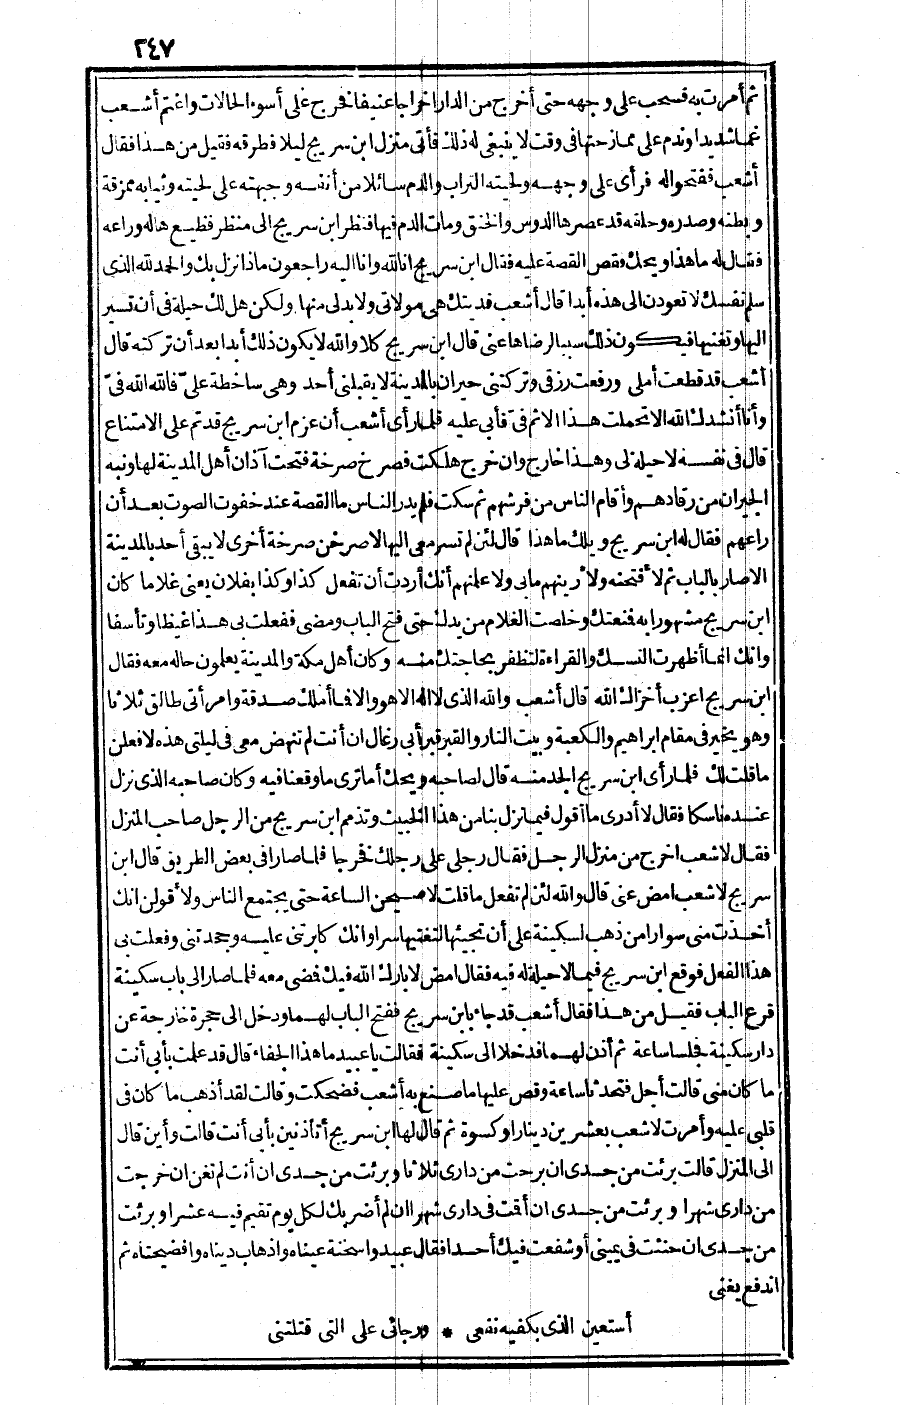 ٢٤٧
ثم أمرت به فسحب على وجهه حتى أخرج من الدار اخراجا عنيفا فخرج على أسوء الحالات واغتم أشعب
غما شديدا وندم على ممازحتها في وقت لا ينبغي له ذلك فأتى منزل ابن سريج ليلا فطرقه فقيل من هذا فقال
أشعب ففتحوا له فرأى على وجهه ولحيته التراب والدم سائلا من أنفه وجبهته على لحيته وثيابه ممزقة
وبطنه وصدره وحلقه قد عصرها الدوس والخنق ومات الدم فيها فنظر ابن سريج الى منظر فظيع هاله وراعه
فقال له ما هذا ويحك فقص القصة عليه فقال ابن سريج انا لله وانا اليه راجعون ماذا نزل بك والحمد لله الذي
سلم نفسك لا تعودن الى هذه أبدا قال أشعب فديتك هي مولاتي ولا بد لي منها ولكن هل لك حيلة في أن تسير
اليها وتغنيها فيكون ذلك سببا لرضاها عني قال ابن سريج كلا والله لا يكون ذلك أبدا بعد أن تركته قال
أشعب قد قطعت أملي ورفعت رزقي وتركتني حيران بالمدينة لا يقبلني أحد وهي ساخطة على فالله الله في
وأنا أنشدك الله الا تحملت هذا الاثم في فأبى عليه فلما رأى أشعب أن عزم ابن سريج قد تم على الامتناع
قال في نفسه لا حيلة لى وهذا خارج وان خرج هلكت فصرخ صرخة فتحت آذان أهل المدينة لها ونبه
الجيران من رقادهم وأقام الناس من فرشهم ثم سكت فلم يدر الناس ما القصة عند خفوت الصوت بعد أن
راعهم فقال له ابن سريج ويلك ما هذا قال لئن لم تسر معي اليها لاصرخن صرخة أخرى لا يبقى أحد بالمدينة
الا صار بالباب ثم لأفتحنه ولأرينهم مابي ولا علمنهم أنك أردت أن تفعل كذا وكذا بفلان يعني غلاما كان
ابن سريج مشهورا به فمنعتك وخلصت الغلام من يدك حتى فتح الباب ومضى ففعلت بي هذا غيظا وتأسفا
وانك انما أظهرت النسك والقراءة لتظفر بحاجتك منه وكان أهل مكة والمدينة يعلمون حاله معه فقال
ابن سريج اعزب أخزاك الله قال أشعب والله الذي لا اله الا هو والا فما أملك صدقة وامرأتي طالق ثلاثا
وهو نحير في مقام ابراهيم والكعبة وبيت النار والقبر قبر أبي رغال ان أنت لم تنهض معي في ليلتي هذه لافعلن
ما قلت لك فلما رأى ابن سريج الجد منه قال لصاحبه ويحك أما ترى ما وقعنا فيه وكان صاحبه الذي نزل
عنده ناسكا فقال لا أدري ما أقول فيما نزل بنا من هذا الخبيث وتذمم ابن سريج من الرجل صاحب المنزل
فقال لاشعب اخرج من منزل الرجل فقال رجلى على رجلك فخرجا فلما صارا في بعض الطريق قال ابن
سريج لاشعب امض عني قال والله لئن لم تفعل ما قلت لاصيحن الساعة حتى يجتمع الناس ولأقولن انك
أخذت مني سوارا من ذهب لسكينة على أن تجيئها فتغنيها سرا وانك كابرتني عليه وجحدتني وفعلت بي
هذا الفعل فوقع ابن سريج فيما لا حيلة له فيه فقال امض لا بارك الله فيك فمضى معه فلما صار الى باب سكينة
قرع الباب فقيل من هذا فقال أشعب قد جاء بابن سريج ففتح الباب لهما ودخل الى حجرة خارجة عن
دار سكينة فجلسا ساعة ثم أذن لهما فدخلا الى سكينة فقالت يا عبيد ما هذا الجفاء قال قد علمت بأبي أنت
ما كان مني قالت أجل فتحدثا ساعة وقص عليها ما صنع به أشعب فضحكت وقالت لقد أذهب ما كان في
قلبي عليه وأمرت لاشعب بعشرين دينارا وكسوة ثم قال لها ابن سريج أتأذنين بأبي أنت قالت وأين قال
الى المنزل قالت برئت من جدى ان برحت من دارى ثلاثا وبرئت من جدى ان أنت لم تغن ان خرجت
من دارى شهرا وبرئت من جدى ان أقمت في دارى شهرا ان لم أضربك لكل يوم تقيم فيه عشرا وبرئت
من جدى ان حنثت في يميني أو شفعت فيك أحدا فقال عبيد واسخنة عيناه واذهاب ديناه وافضيحتاه ثم
اندفع يغني
أستعين الذي بكفيه نفعي * ورجائي على التي قتلتني